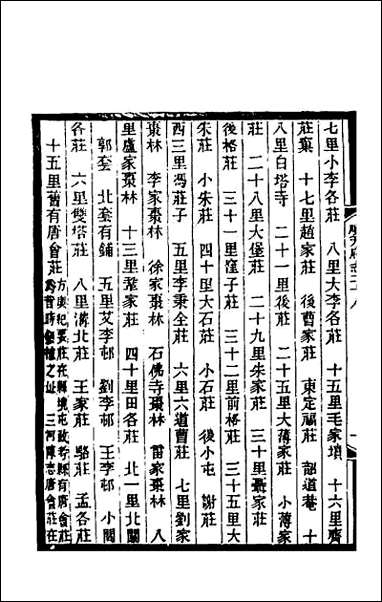 七里小李各莊　八里大李各莊　十五里毛家墳　十六里齊
莊窠　十七里趙家莊　後曹家莊　東定福莊　韶道巷　十
八里白塔寺　二十一里後莊　二十五里大薄家莊　小薄家
莊　二十八里大堡莊　二十九里朱家莊　三十里聶家莊
後格莊　三十一里窪子莊　三十二里前格莊　三十五里大
朱莊　小朱莊　四十里大石莊　小石莊　後小屯　謝莊
西三里馮莊子　五里李秉全莊　六里六道曹莊　七里劉家
棗林　李家棗林　徐家棗林　石佛寺棗林　雷家棗林　八
里盧家棗林　十三里龔家莊　四十里田各莊　北一里北關
郭套　北套有鋪　五里艾李邨　劉李邨　王李邨　小閻
各莊　六里雙塔莊　八里溝北莊　王家莊　駱莊　孟各莊
十五里舊有唐會莊
三河陳志唐會莊在